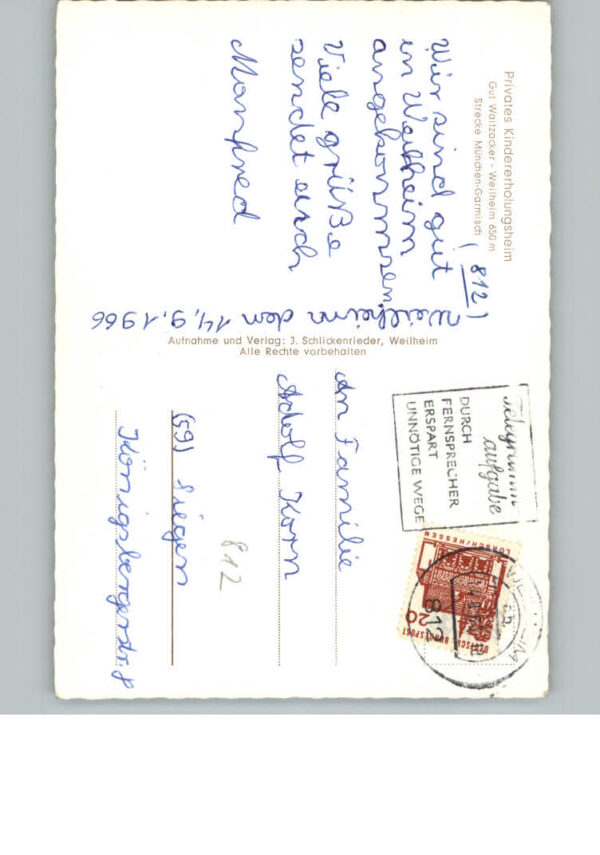 Privates Kindererholungsheim
Gut Waitzacker - Weilheim 650 m
Strecke München-Garmisch
(812)
Weilheim den 14.9.1966
Wir sind gut
in Weilheim
angekommen
Viele grüße
sendet euch
Manfred
Aufnahme und Verlag: J. Schlickenrieder, Weilheim
Alle Rechte vorbehalten
Telegramm
aufgabe
DURCH
FERNSPRECHER
ERSPART
UNNÖTIGE WEGE
DEUTSCHE BUNDESPOST
20
LORSCH/HESSEN
812
An Familie
Adolf Korn
(59) Siegen
Königsbergerstr. 8
812